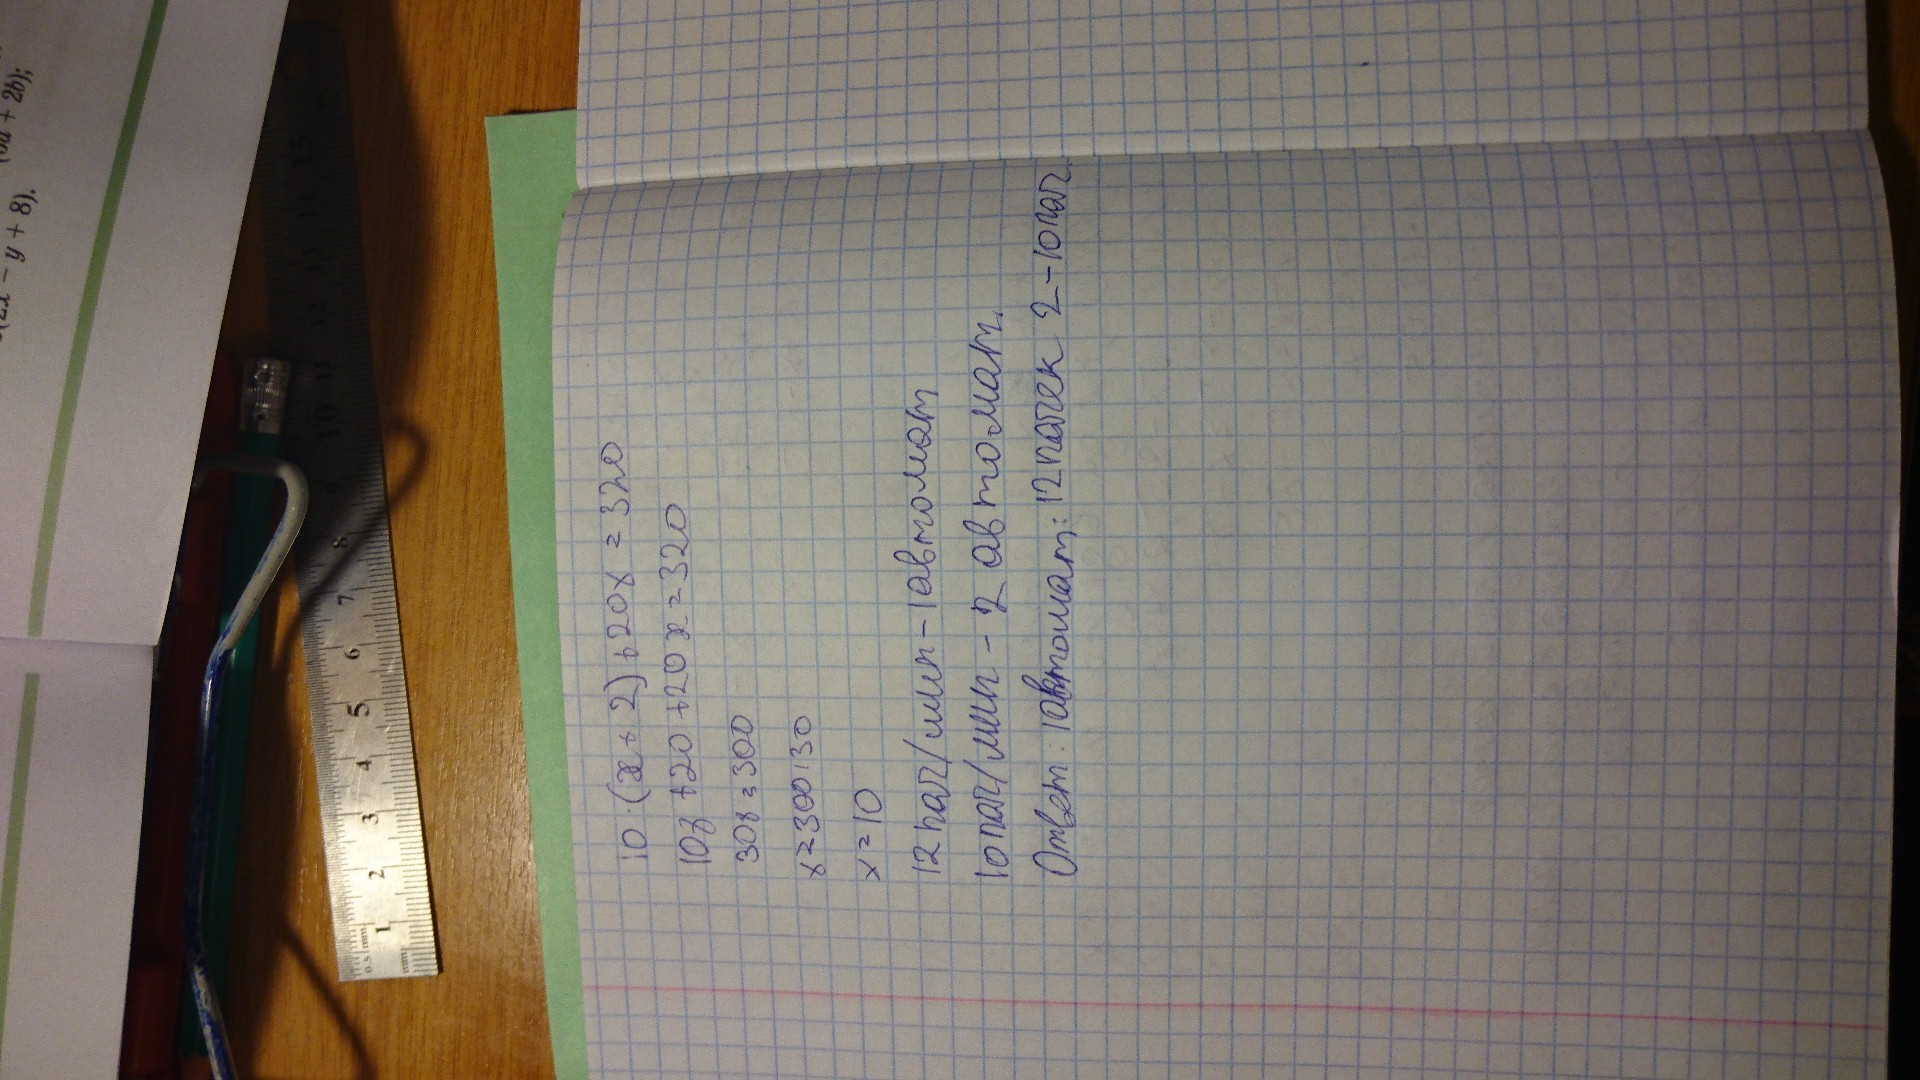 10·(x+2)+20x=320
10x+20+20x=320
30x=300
x=300:30
x=10
12 пач/мин - 1 автомат
10 пач/мин - 2 автомат.
Ответ: 1 автомат: 12 пачек 2-10 пач.
2b);
- y + 8).
1 2 3 4 5 6 7 8 9 10 11 12 13 14 15
0.5 mm
mm